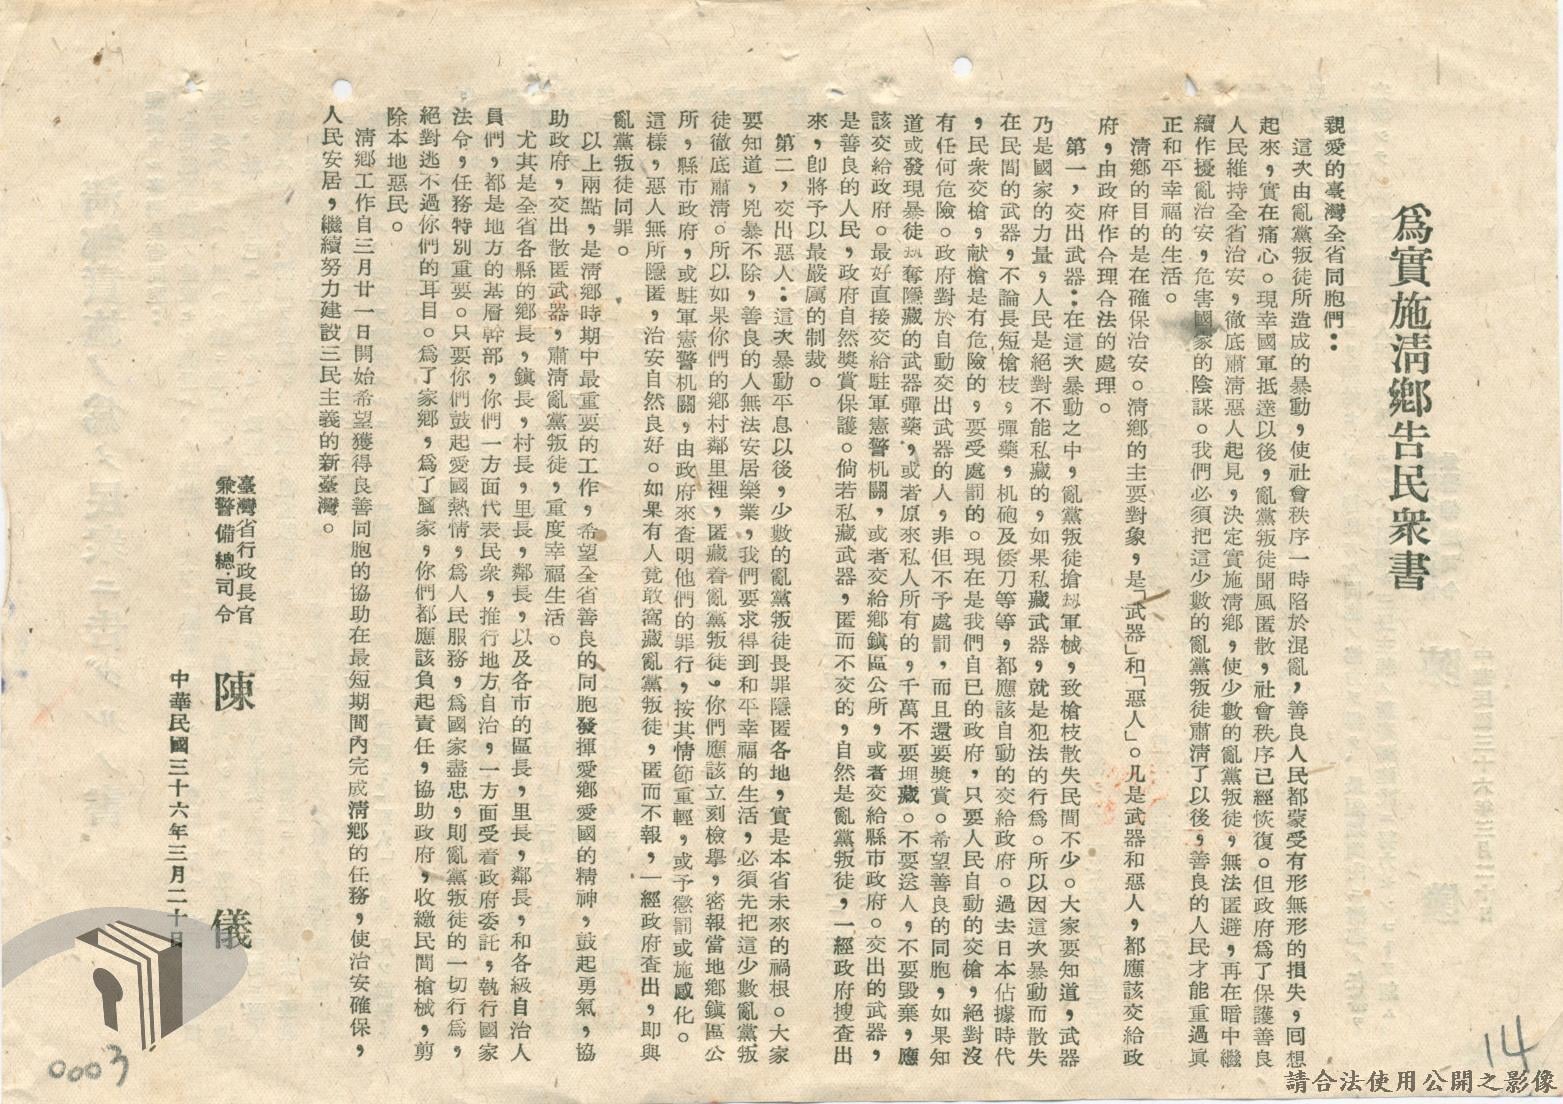 爲實施清鄉告民衆書
親愛的臺灣全省同胞們：
這次由亂黨叛徒所造成的暴動，使社會秩序一時陷於混亂，善良人民都蒙受有形無形的損失，囘想
起來，實在痛心。現幸國軍抵達以後，亂黨叛徒聞風匿散，社會秩序已經恢復。但政府爲了保護善良
人民維持全省治安，徹底肅清惡人起見，決定實施清鄉，使少數的亂黨叛徒，無法匿避，再在暗中繼
續作擾亂治安，危害國家的陰謀。我們必須把這少數的亂黨叛徒肅清了以後，善良的人民才能重過眞
正和平幸福的生活。
清鄉的目的是在確保治安。清鄉的主要對象，是「武器」和「惡人」。凡是武器和惡人，都應該交給政
府，由政府作合理合法的處理。
第一，交出武器：在這次暴動之中，亂黨叛徒搶刼軍械，致槍枝散失民間不少。大家要知道，武器
乃是國家的力量，人民是絕對不能私藏的，如果私藏武器，就是犯法的行爲。所以因這次暴動而散失
在民間的武器，不論長短槍枝，彈藥，机砲及倭刀等等，都應該自動的交給政府。過去日本佔據時代
，民衆交槍，献槍是有危險的，要受處罰的。現在是我們自已的政府，只要人民自動的交槍，絕對沒
有任何危險。政府對於自動交出武器的人，非但不予處罰，而且還要獎賞。希望善良的同胞，如果知
道或發現暴徒刼奪隱藏的武器彈藥，或者原來私人所有的，千萬不要埋藏。不要送人，不要毀棄，應
該交給政府。最好直接交給駐軍憲警机關，或者交給鄉鎭區公所，或者交給縣市政府。交出的武器，
是善良的人民，政府自然獎賞保護。倘若私藏武器，匿而不交的，自然是亂黨叛徒，一經政府搜査出
來，卽將予以最嚴厲的制裁。
第二，交出惡人：這次暴動平息以後，少數的亂黨叛徒畏罪隱匿各地，實是本省未來的禍根。大家
要知道，兇暴不除，善良的人無法安居樂業，我們要求得到和平幸福的生活，必須先把這少數亂黨叛
徒徹底肅清。所以如果你們的鄉村鄰里裡，匿藏着亂黨叛徒。你們應該立刻檢擧，密報當地鄉鎭區公
所，縣市政府，或駐軍憲警机關，由政府來査明他們的罪行，按其情節重輕，或予懲罰或施感化。
這樣，惡人無所隱匿，治安自然良好。如果有人竟敢窩藏亂黨叛徒，匿而不報，一經政府査出，即與
亂黨叛徒同罪。
以上兩點，是清鄉時期中最重要的工作，希望全省善良的同胞發揮愛鄉愛國的精神，鼓起勇氣，協
助政府，交出散匿武器，肅清亂黨叛徒，重度幸福生活。
尤其是全省各縣的鄉長，鎭長，村長，里長，鄰長，以及各市的區長，里長，鄰長，和各級自治人
員們，都是地方的基層幹部，你們一方面代表民衆，推行地方自治，一方面受着政府委託，執行國家
法令，任務特別重要。只要你們鼓起愛國熱情，爲人民服務，爲國家盡忠，則亂黨叛徒的一切行爲，
絕對逃不過你們的耳目。爲了家鄉，爲了國家，你們都應該負起責任，協助政府，收繳民間槍械，剪
除本地惡民。
清鄉工作自三月廿一日開始希望獲得良善同胞的協助在最短期間內完成清鄉的任務，使治安確保，
人民安居，繼續努力建設三民主義的新臺灣。
臺灣省行政長官
兼警備總司令
陳儀
中華民國三十六年三月二十日
0003
14
請合法使用公開之影像